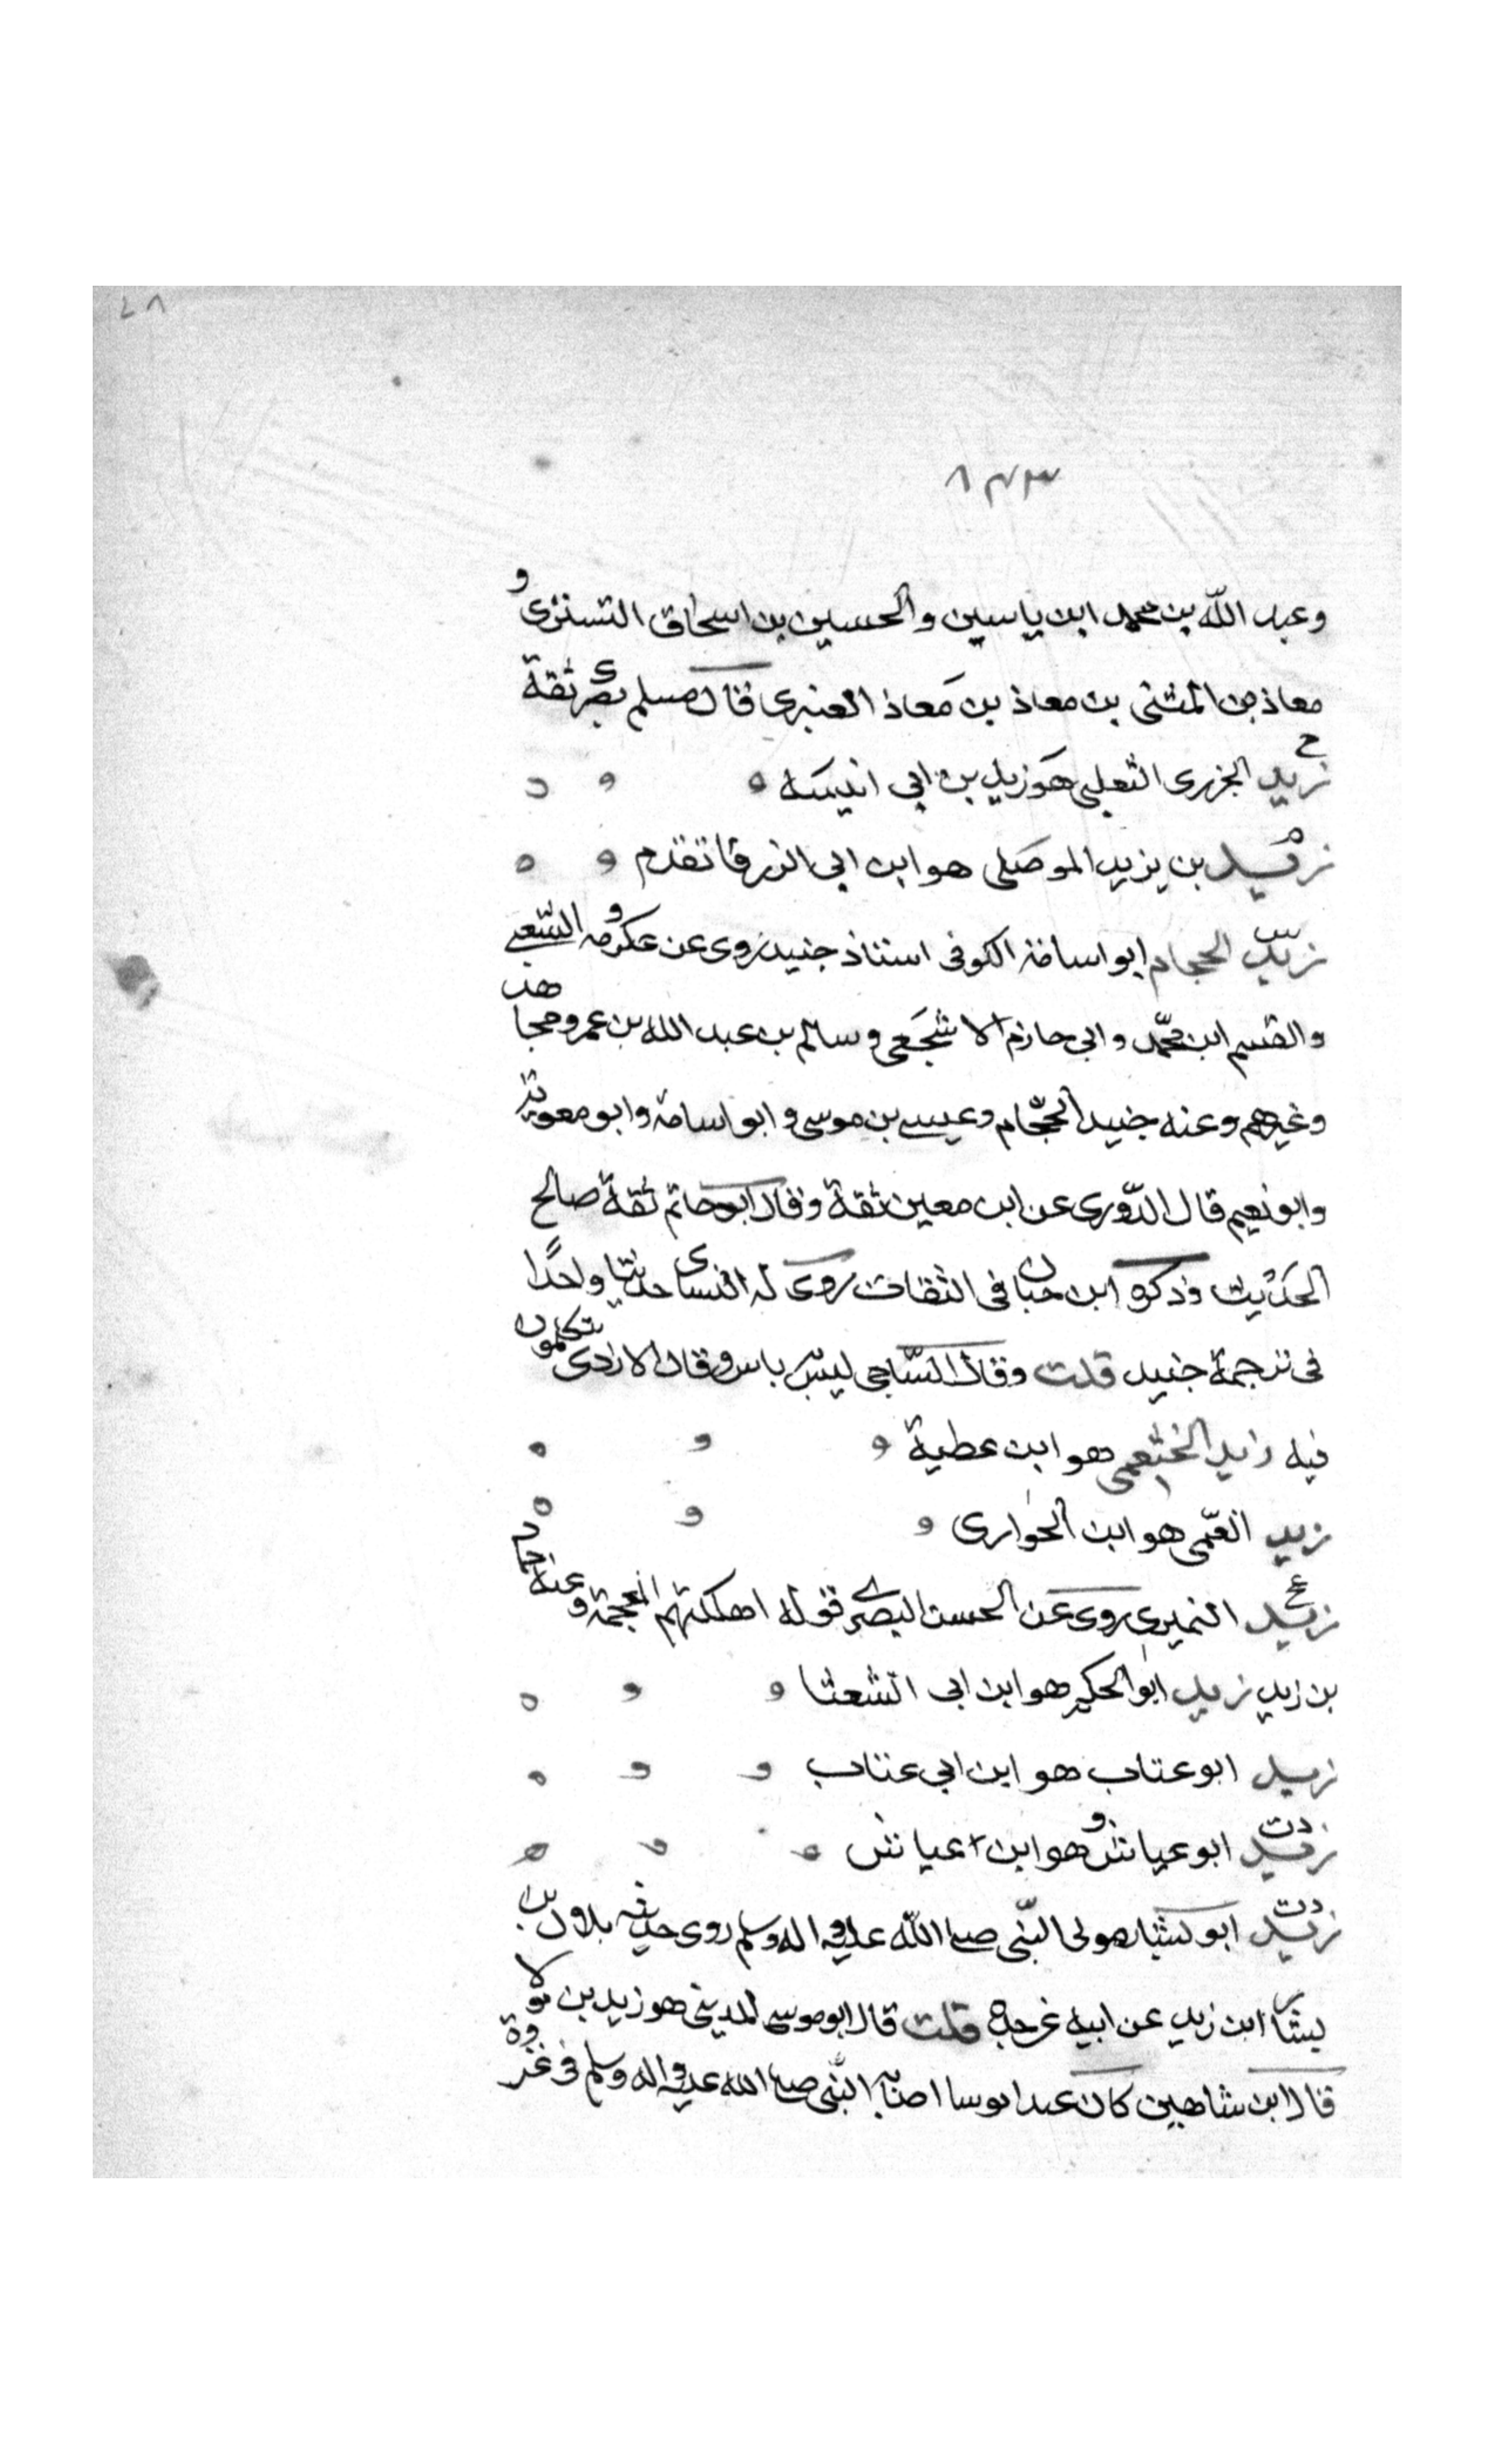 ٨٧
٨٣٣
وعبد الله بن محمد ابن ياسين والحسين بن اسحاق التستری و
معاذ بن المثنی بن معاذ بن معاذ العنبری قال مسلم بصری ثقة
ع زید الجزری الثعلبی هو زید بن ابی انیسه
زید بن یزید الموصلی هو ابن ابی الزرقا تقدم
س زید الحجام ابو اسامة الکوفی استاذ جنید روی عن عکرمه و الشعبی
والقسم ابن محمد وابی حازم الاشجعی وسالم بن عبد الله بن عمر ومجاهد
وغیرهم وعنه جنید الحجّام وعیسی بن موسی وابو اسامة وابو معویة
وابو نعیم قال الدّوری عن ابن معین ثقة وقال ابو حاتم ثقة صالح
الحدیث وذکره ابن حبان فی الثقات روی له النسای حدیثا واحدًا
فی ترجمة جنید قلت وقال السّاجی لیس باس وقال الازدی یتکلمون
فیه زید الخثعمی هو ابن عطیة
زید العمّی هو ابن الحواری
زید النمیری روی عن الحسن البصری قوله اهلکتهم العجمة وعنه حماد
بن زید زید ابو الحکم هو ابن ابی الشعثا
زید ابو عتاب هو ابن ابی عتاب
زید ابو عیاش هو ابن عیاش
دت زید ابو یسار مولی النّبی صلی الله علیه واله وسلم روی حدیثه بلال بن
یسار ابن زید عن ابیه عن جده قلت قال ابو موسی المدینی هو زید بن بولا
قال ابن شاهین کان عبدا نوبیا اصابه النّبی صلی الله علیه واله وسلم فی غزوة